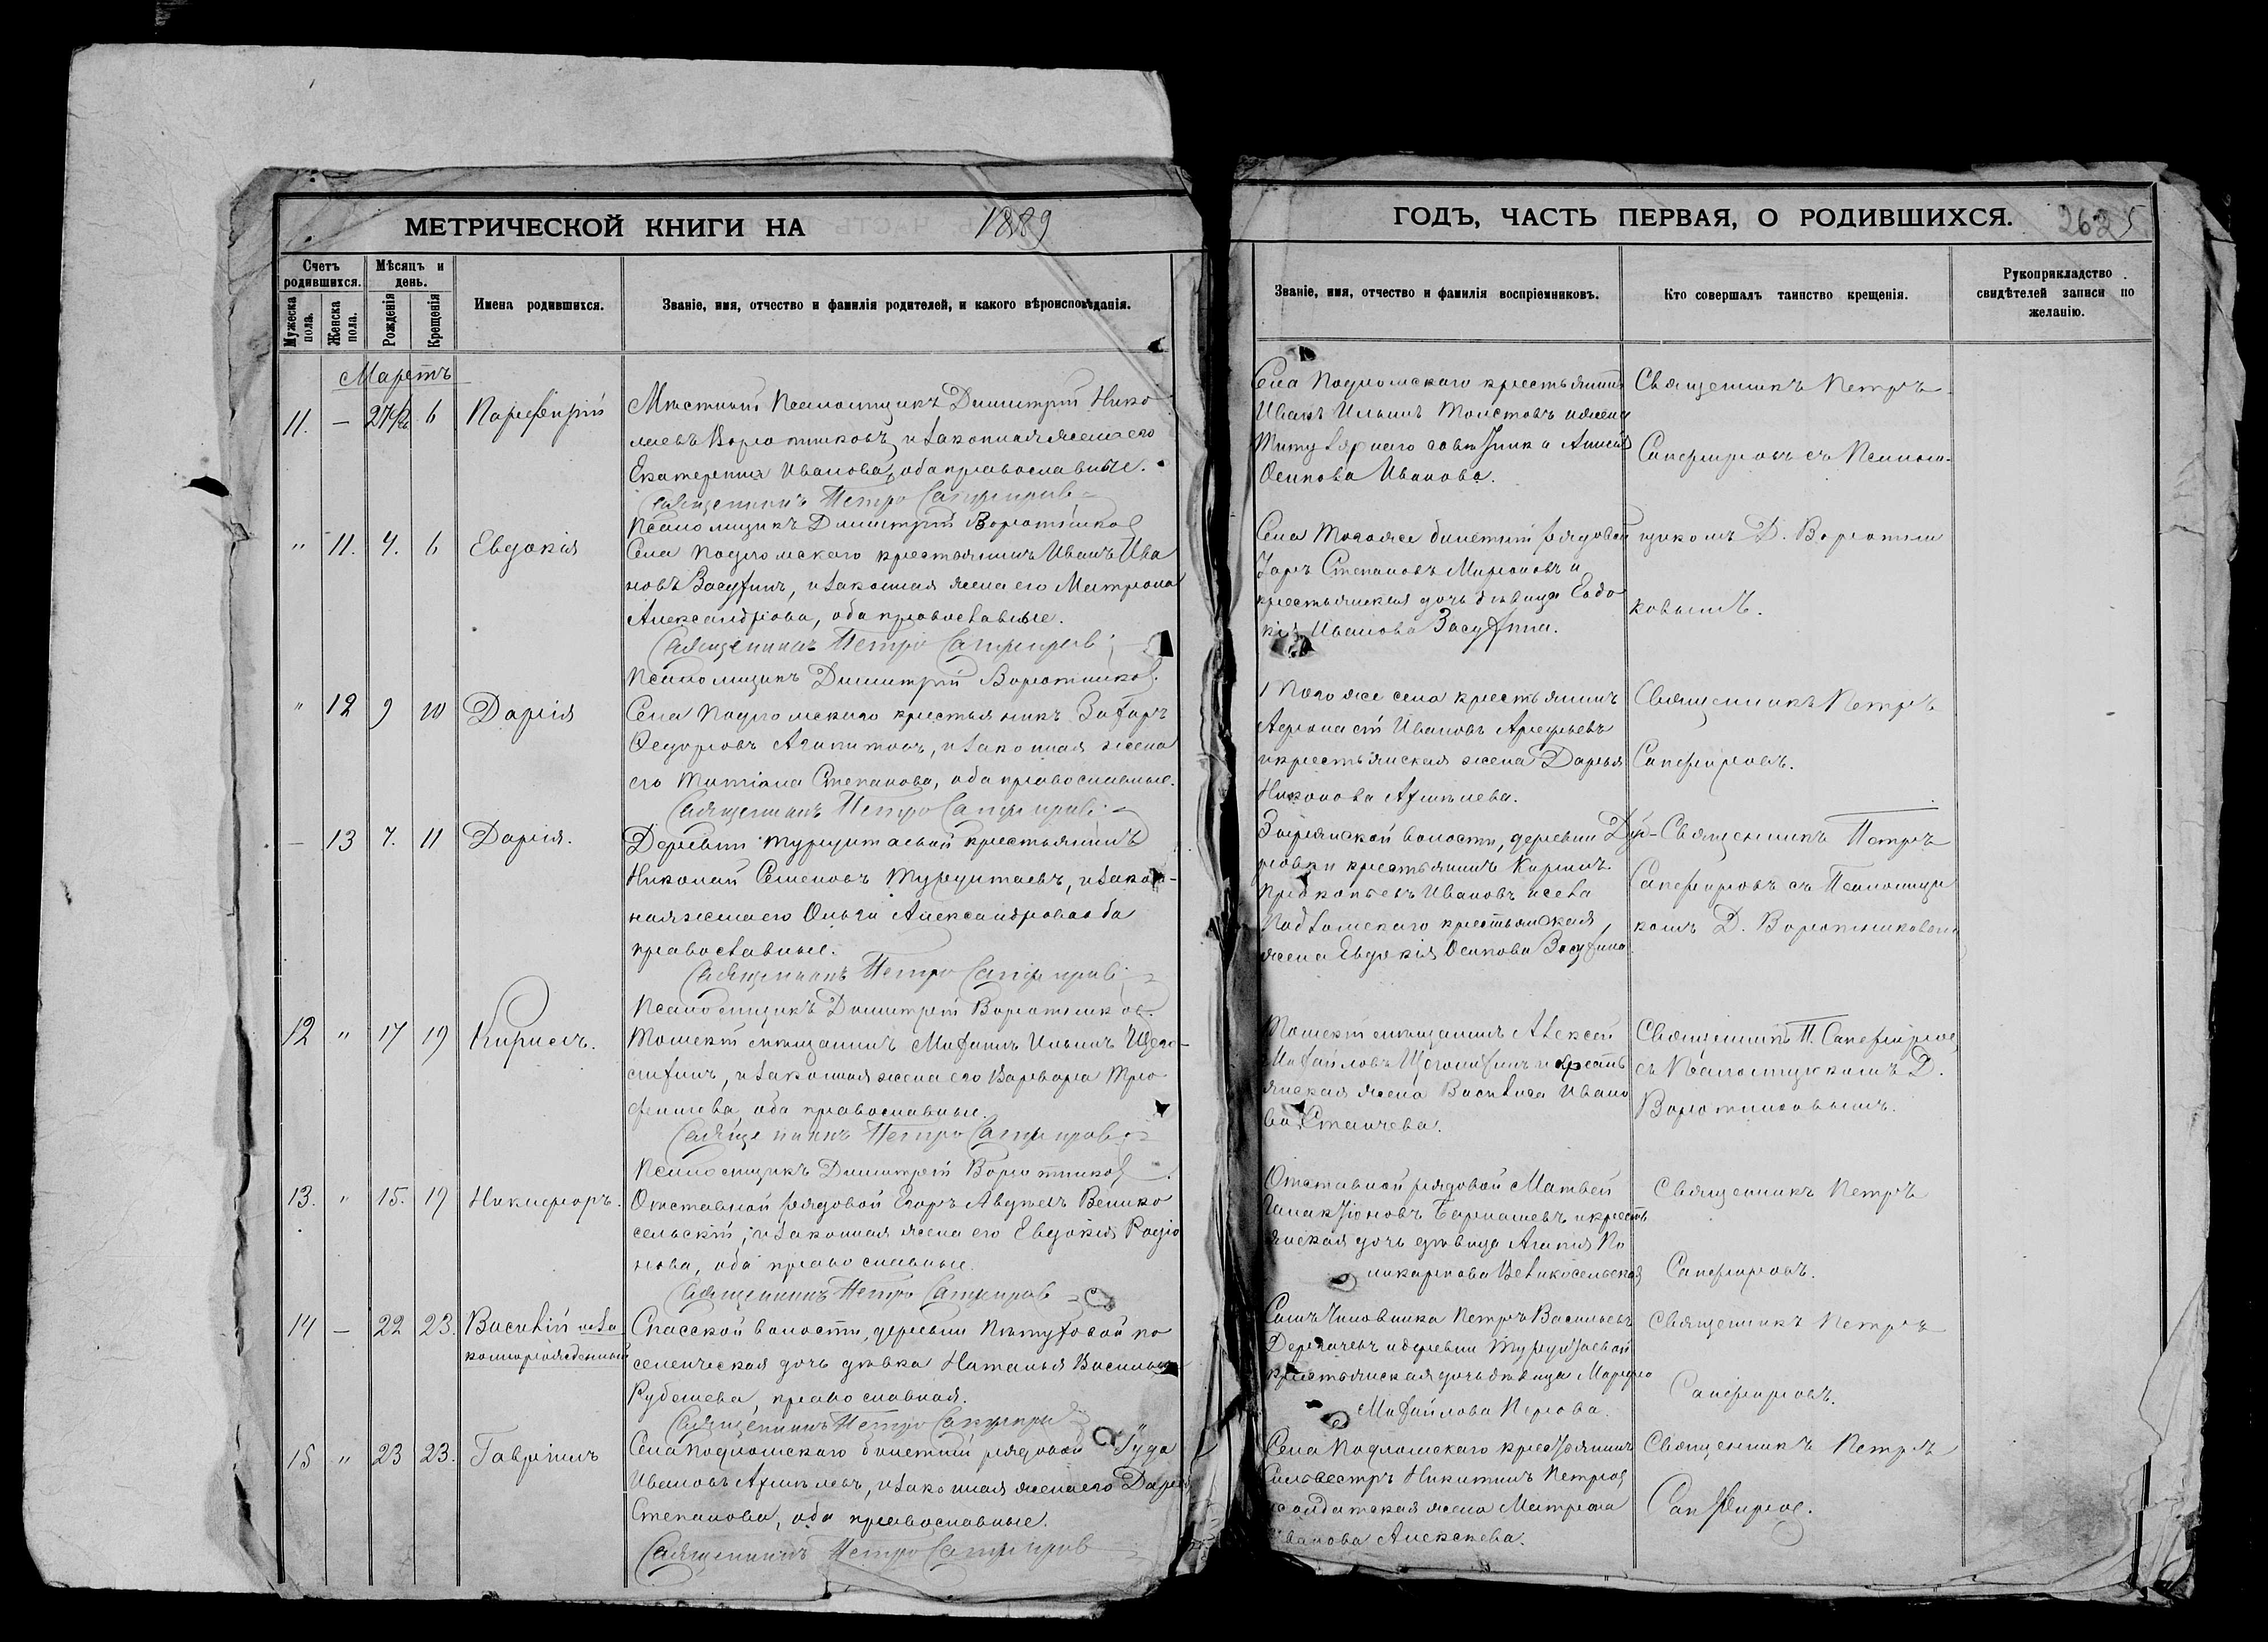 МЕТРИЧЕСКОЙ КНИГИ НА 1889
ГОДЪ, ЧАСТЬ ПЕРВАЯ, О РОДИВШИХСЯ.
Счетъ родившихся.
Мужеска пола.
Женска пола.
Мѣсяцъ и день.
Рожденія
Крещенія
Имена родившихся.
Званіе, имя, отчество и фамилія родителей, и какого вѣроисповѣданія.
Званіе, имя, отчество и фамилія воспріемниковъ.
Кто совершалъ таинство крещенія.
Рукоприкладство
свидѣтелей записи по
желанію.
Мартъ
11. — 6 Парфеній
Мѣстный Псаломщикъ Димитрій Нико
лаевъ Воротниковъ, и законная жена его
Екатерина Иванова, оба православные.
Священникъ Петръ Сапфировъ
Псаломщикъ Димитрій Воротниковъ
Села Подломскаго крестьянинъ
Иванъ Ильинъ Толстовъ и жена
Титулярнаго совѣтника
Осипова Иванова.
Священникъ Петръ
Сапфировъ съ Псалом-
щикомъ Д. Воротни
ковымъ.
" 11. 4. 6 Евдокія
Села Подломскаго крестьянинъ Иванъ Ива
новъ Засухинъ, и законная жена его Матрона
Александрова, оба православные.
Священникъ Петръ Сапфировъ
Псаломщикъ Димитрій Воротниковъ.
Села того же билетный рядовой
Степановъ Мироновъ и
крестьянская дочь дѣвица Евдо
кія Иванова Засухина.
" 12 9 10 Дарія
Села Подломскаго крестьянинъ Захаръ
Ѳедоровъ Агапитовъ, и законная жена
его Татіана Степанова, оба православные.
Священникъ Петръ Сапфировъ
Того же села крестьянинъ
Иванов Арефьевъ
и крестьянская жена Дарья
Никонова
Священникъ Петръ
Сапфировъ.
— 13 7. 11 Дарія.
Деревни Турунтаевой крестьянинъ
Николай Семеновъ Турунтаевъ, и закон-
ная жена его Ольга Александрова оба
православные.
Священникъ Петръ Сапфировъ
Псаломщикъ Димитрій Воротниковъ.
волости, деревни
крестьянинъ
Прокопьевъ Ивановъ и села
Подломскаго крестьянская
жена Евдокія Осипова Засухина.
Священникъ Петръ
Сапфировъ съ Псаломщи
комъ Д. Воротниковымъ
12 " 17 19 Кирилъ.
Томскій мѣщанинъ Михаилъ Ильинъ Щего-
лихинъ, и законная жена его Варвара Тро
фимова, оба православные.
Священникъ Петръ Сапфировъ
Псаломщикъ Димитрій Воротниковъ
Томскій мѣщанинъ Алексѣй
Михайловъ Щеголихинъ и кресть
янская жена Василиса Ивано
ва
Священникъ П. Сапфировъ
съ Псаломщикомъ Д.
Воротниковымъ.
13. " 15. 19 Никифоръ.
Отставной рядовой Егоръ Авдѣевъ Велико
сельскій, и законная жена его Евдокія Родіо
нова, оба православные.
Священникъ Петръ Сапфировъ
Отставной рядовой Матвѣй
Галактіоновъ и кресть
янская дочь дѣвица Агапія По
ликарпова Великосельская
Священникъ Петръ
Сапфировъ.
14 — 22 23. Василій неза
коннорожденный
Спасской волости, деревни Пѣтуховой по
селенческая дочь дѣвка Наталья Васильева
Рубешева, православная.
Священникъ Петръ Сапфировъ
Сынъ Чиновника Петръ Васильевъ
и деревни Турунтаевой
крестьянская дочь дѣвица
Михайлова
Священникъ Петръ
Сапфировъ.
15 " 23 23. Гавріилъ
Села Подломскаго билетный рядовой Іуда
Ивановъ и законная жена его Дарья
Степанова, оба православные.
Священникъ Петръ Сапфировъ
Села Подломскаго крестьянинъ
Сильвестръ Никитинъ Петровъ,
солдатская жена Матрона
Иванова Алексѣева.
Священникъ Петръ
Сапфировъ.